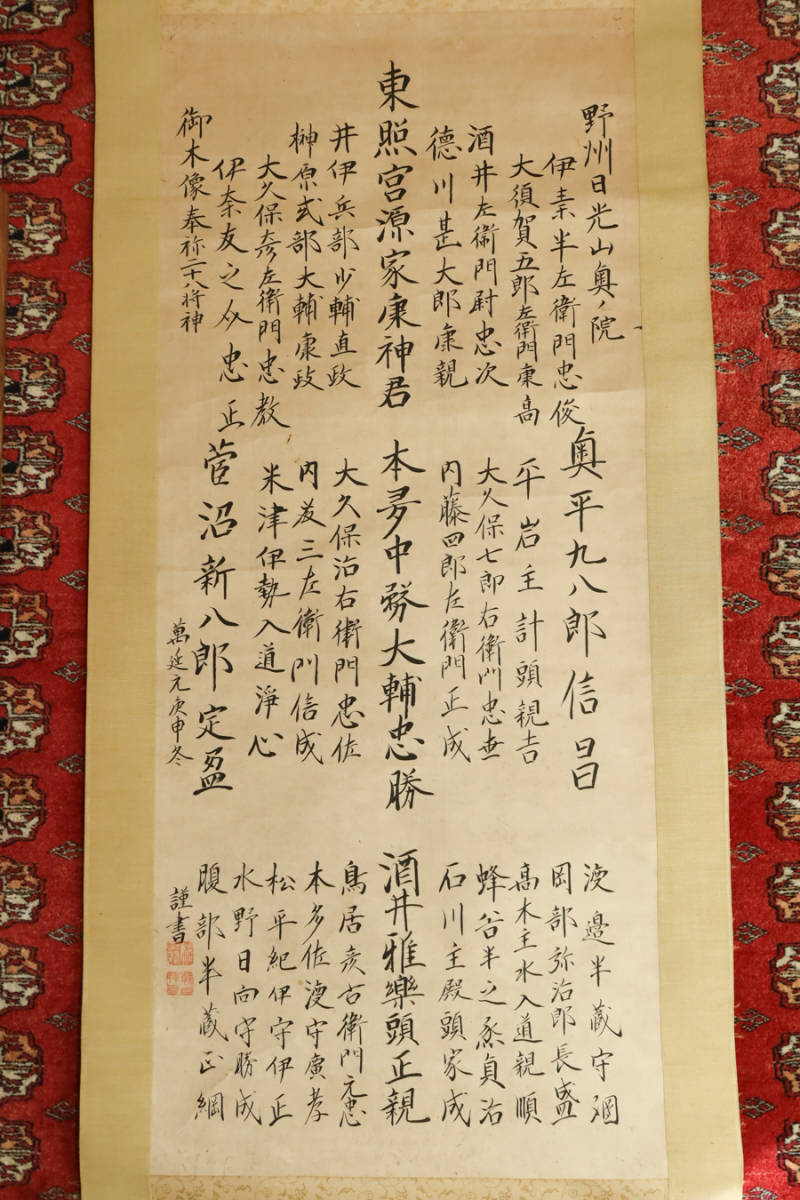 野州日光山奥ノ院
伊素半左衛門忠俊
大須賀五郎左衛門康高
酒井左衛門尉忠次
徳川甚太郎康親
東照宮源家康神君
井伊兵部少輔直政
榊原式部大輔康政
大久保彦左衛門忠教
伊奈友之助忠正
御木像奉祢二十八将神
奥平九八郎信昌
平岩主計頭親吉
大久保七郎右衛門忠世
内藤四郎左衛門正成
本多中務大輔忠勝
大久保治右衛門忠佐
内藤三左衛門信成
米津伊勢入道浄心
菅沼新八郎定盈
萬延元庚申冬
渡邉半蔵守綱
岡部弥治郎長盛
高木主水入道親順
蜂谷半之丞貞治
石川主殿頭家成
酒井雅樂頭正親
鳥居彦右衛門元忠
本多佐渡守廣孝
松平紀伊守伊正
水野日向守勝成
腹部半蔵正綱
謹書